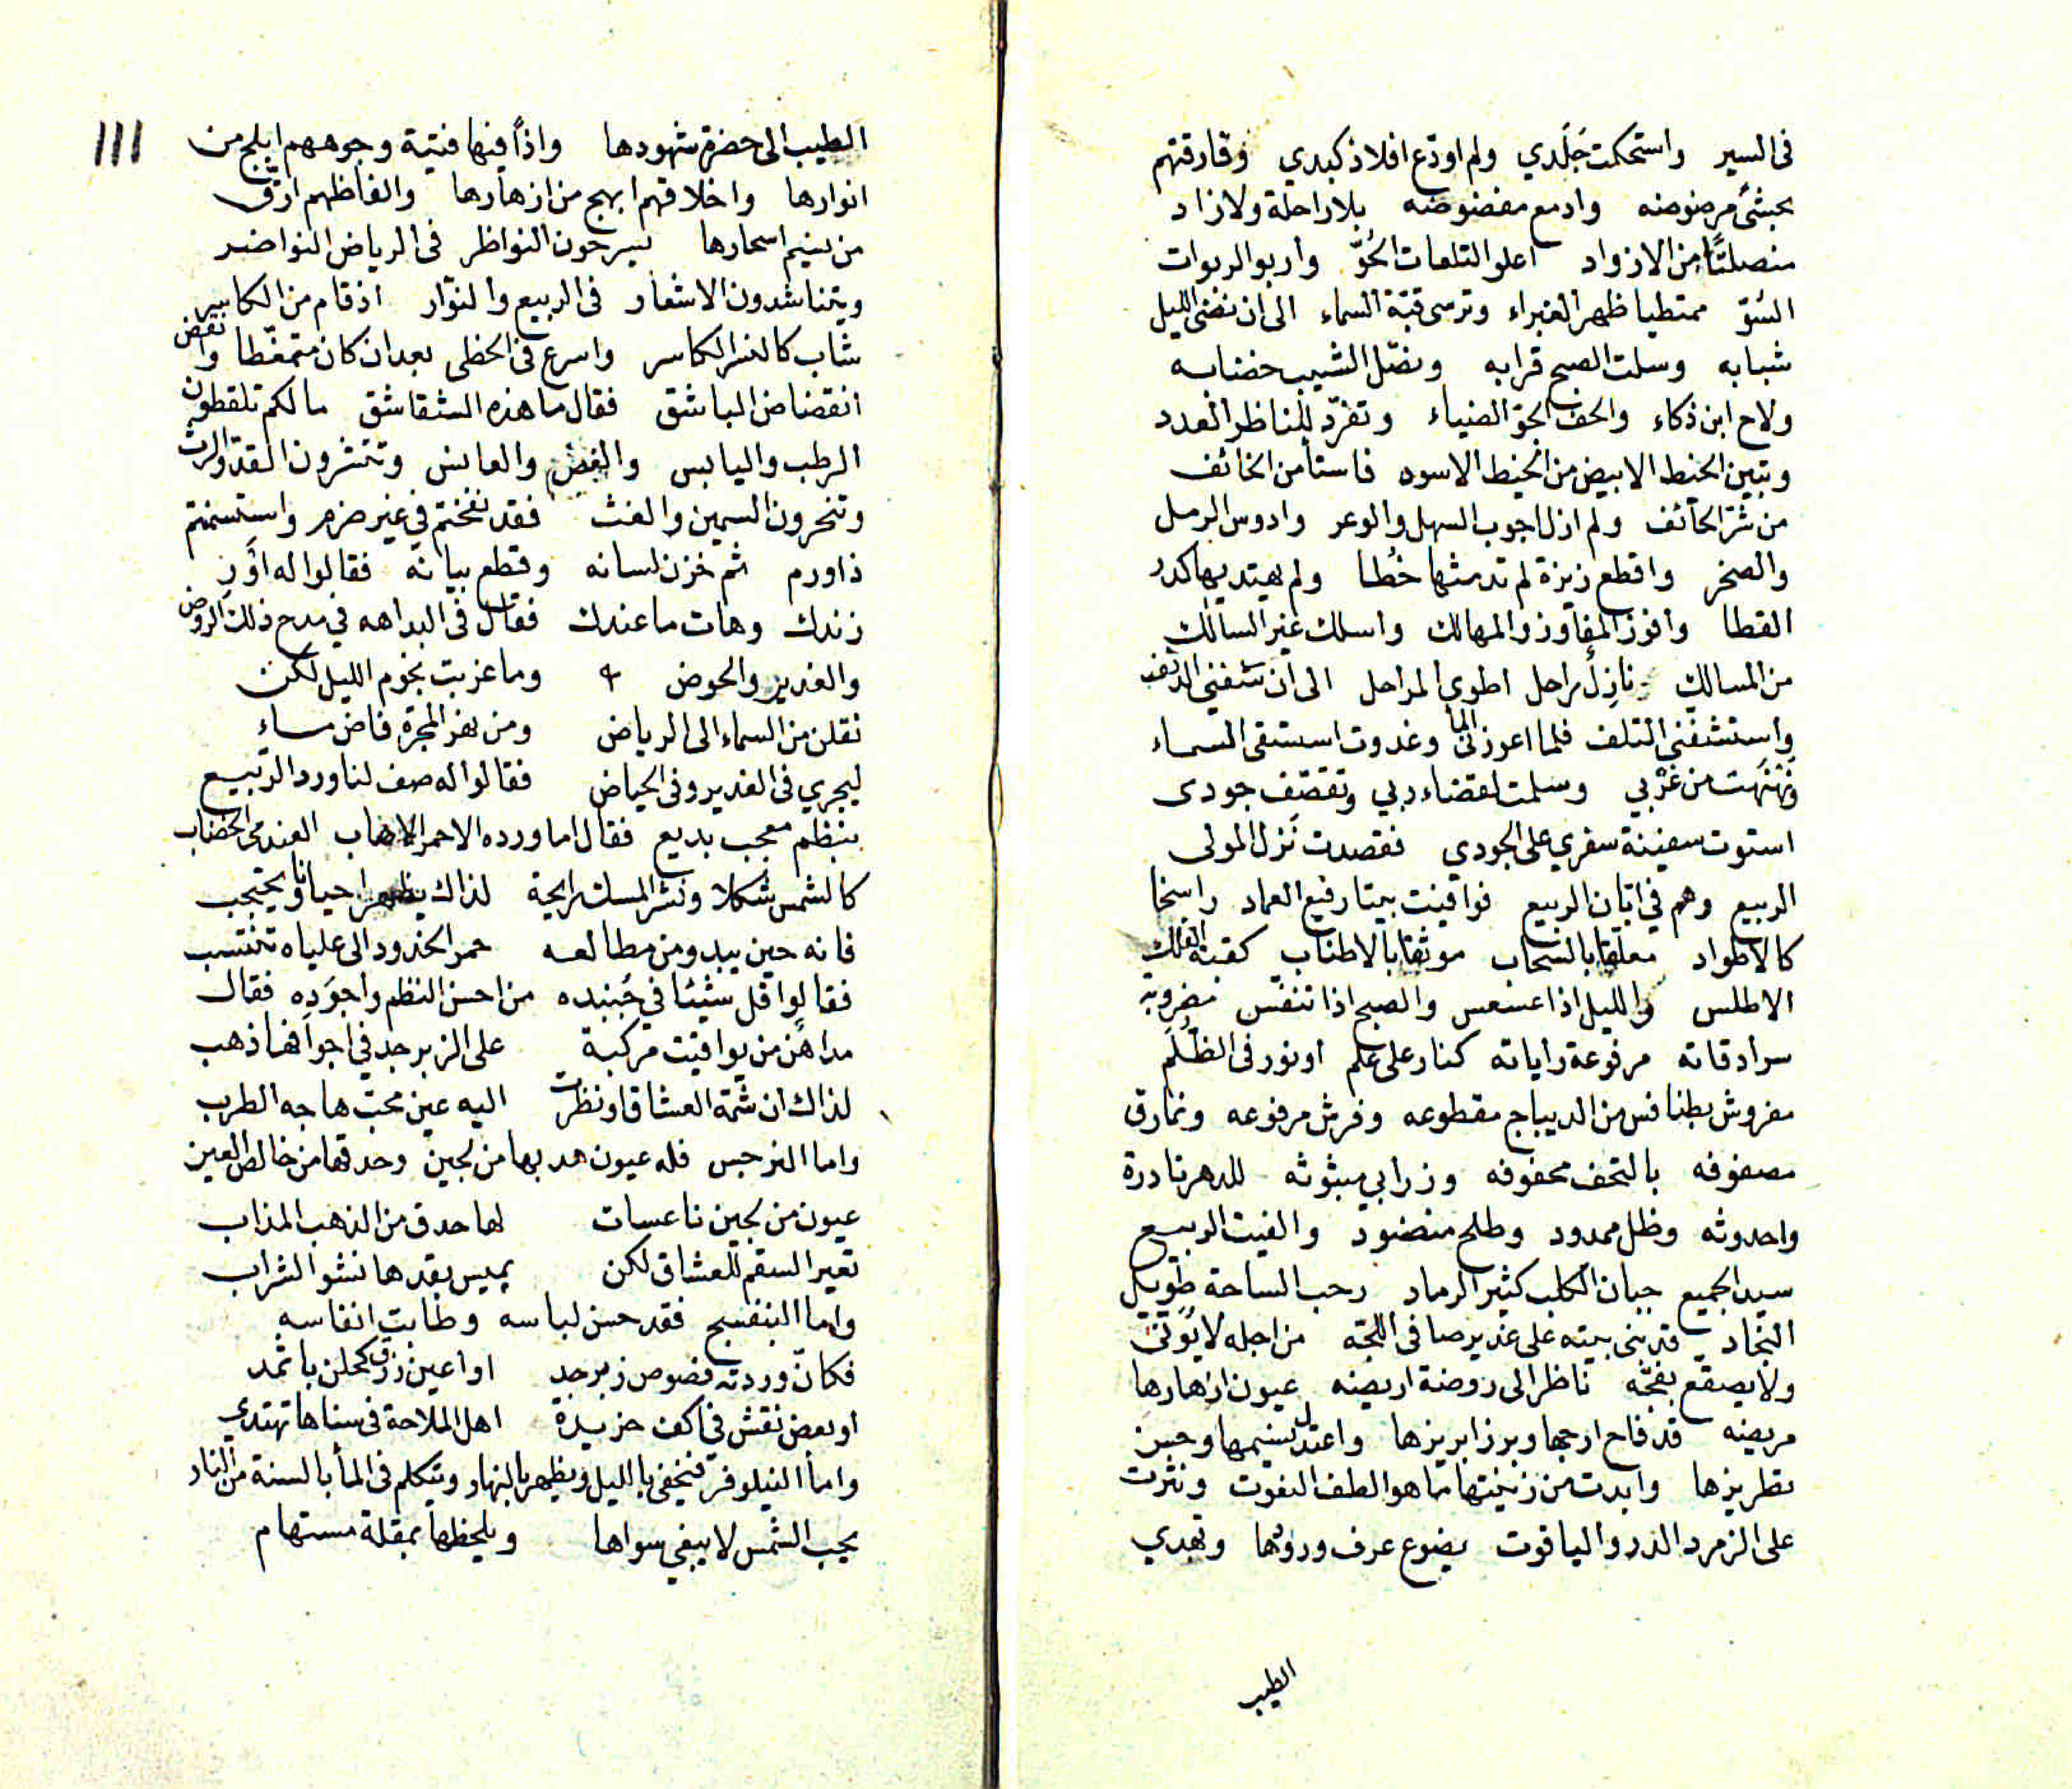 فى السير واستحكت جَلَدي ولم اودّع افلاذ كبدي وفارقتهم
بحشئ مرضوضه وادمع مفضوضه بلا راحلة ولا زاد
منصلتًا من الازواد اعلو التلعات الحُوّ واربو الربوات
ممتطيا ظهر الغبراء وترسى قبّة السماء الى ان نضى الليل
شبابه وسلت الصبح قرابه ونصّل الشيب خضابه
ولاح ابن ذكاء والحف الجوّ الضياء وتفرّد للناظر الفدد
وتبين الخيط الابيض من الخيط الاسود فاستأمن الخائف
من شرّ الحائف ولم ازل اجوب السهل والوعر وادوس الرمل
والصخر واقطع زيزة لم تدمثها خُطا ولم يهتد بها كدر
القطا وافوز المفاوز والمهالك واسلك غير السالك
من المسالك نازل راحل اطوي المراحل الى ان شفنى
واستشفنى التلف فلما اعوزنى الما وغدوت استسقى السماء
ونهنهت من غربي وسلمت لقضاء ربي وتقصّف جودى
استوت سفينة سفري على الجودي فقصدت نزل المولى
الربيع وهم في ابّان الربيع فوافيت بيتا رفيع العماد راسخا
كالاطواد معلقا بالسحاب موثقا بالاطناب كقبة الفلك
الاطلس والليل اذا عسعس والصبح اذا تنفّس مضروبة
سرادقاته مرفوعة راياته كنار على علم او نور فى الظُلَم
مفروش بطنافس من الديباج مقطوعه وفرش مرفوعه ونمارق
مصفوفه بالتحف محفوفه وزرابي مبثوثه للدهر نادرة
واحدوثه وظل ممدود وطلح منضود والفيت الربيع
سيد الجميع جبان الكلب كثير الرماد رحب الساحة طويل
النجاد قد بنى بيته على غدير صافى اللجّه من اجله لا يؤتى
ولا يصقع بفجّه ناظر الى روضة اريضه عيون ازهارها
مريضه قد فاح ارجها وبرز ابريزها واعتدل نسيمها وحسن
تطريزها وابدت من زينتها ما هو الطف النعوت ونثرت
على الزمرد الدرر والياقوت يضوع عرف ورودها وتهدي
الطيب
111
الطيب الى حضرة شهودها واذًا فيها فتية وجوههم ابلج من
انوارها واخلاقهم ابهج من ازهارها والفاظهم ارقّ
من نسيم اسحارها يسرحون النواظر فى الرياض النواضر
ويتناشدون الاشعار فى الربيع والنوّار اذ قام من الكاسر
شاب كالنسر الكاسر واسرع فى الخطى بعد ان كان متمغّطا وانقض
انقضاض الباشق فقال ما هذه الشقاشق ما لكم تلقطون
الرطب واليابس والغض والعابس وتنشرون القدّ والرث
وتنحرون السمين والغث فقد نفختم في غير ضرم واستسمنتم
ذا ورم ثم خزن لسانه وقطع بيانه فقالوا له اوَرِ
زندك وهات ما عندك فقال فى البداهه في مدح ذلك الروض
والغدير والحوض وما عزبت نجوم الليل لكن
نقلن من السماء الى الرياض ومن نهر المجرّة فاض ماء
ليجري فى الغدير وفى الحياض فقالوا له صف لنا ورد الربيع
بنظم معجب بديع فقال اما ورده الاحمر الاهاب العندمى الخضاب
كالشمس شكلا ونشر المسك رايحة لذاك يظهر احيانا ويحتجب
فانه حين يبدو من مطالعه حمر الخدود الى علياه تنتسب
فقالوا قل شيئا في جُنبده من احسن النظم واجوَدِه فقال
مداهن من يواقيت مركبة على الزبرجد في اجوافها ذهب
لذاك ان شمّه العشاق او نظرت اليه عين محبّ هاجه الطرب
واما النرجس فله عيون هدبها من لجين وحدقها من خالص العين
عيون من لجين ناعسات لها حدق من الذهب المذاب
تعير السقم للعشاق لكن يميس بقدها نشو الشراب
واما البنفسج فقد حسن لباسه وطابت انفاسه
فكانّ وردته فصوص زبرجد او اعين زرق كحلن باثمد
او بعض نقش في اكف خريدة اهل الملاحة فى سناها تهتدي
واما النيلوفر فيخفى بالليل ويظهر بالنهار ويتكلم فى المأ بالسنة من النار
يحب الشمس لا يبغى سواها ويلحظها بمقلة مستهام